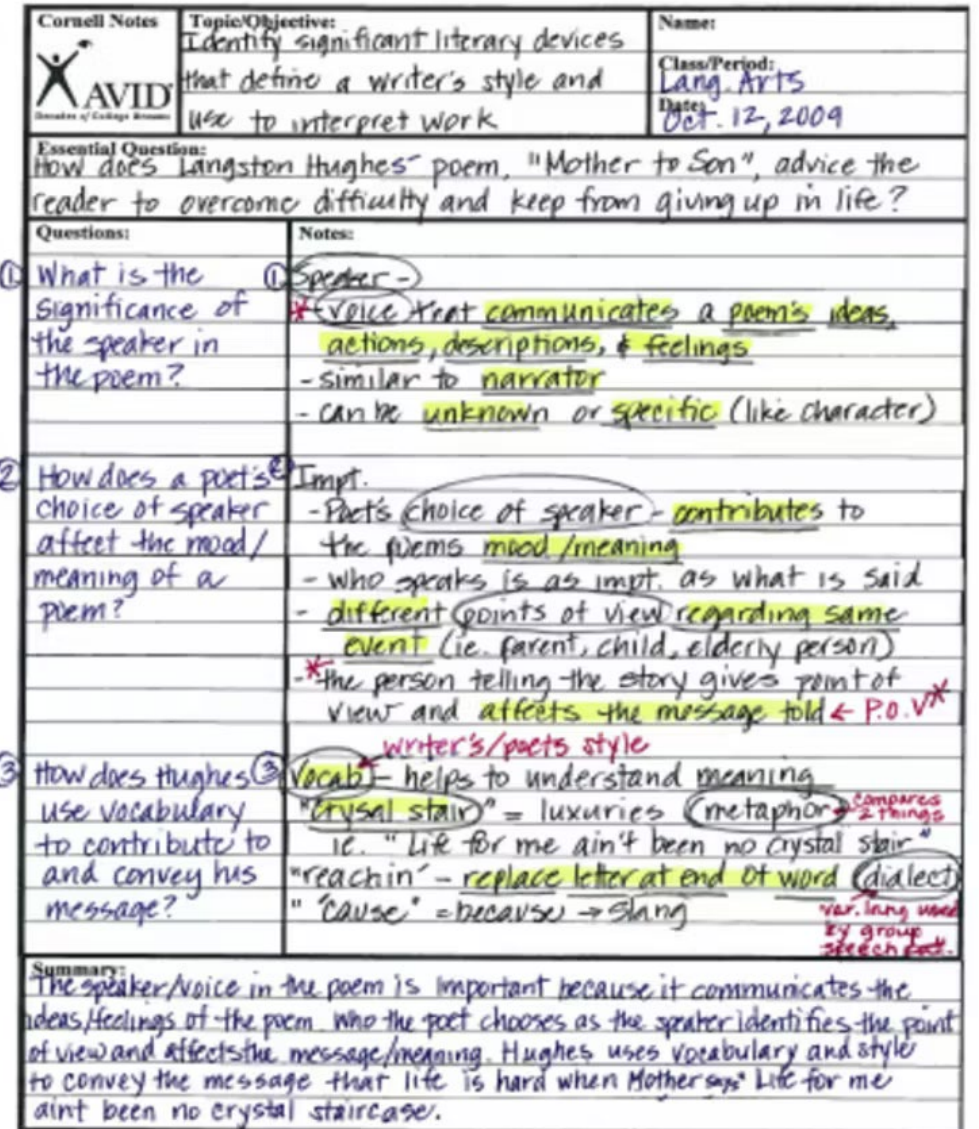 Cornell Notes
AVID
Decades of College Dreams
Topic/Objective:
Identify significant literary devices
that define a writer's style and
use to interpret work
Name:
Class/Period:
Lang. Arts
Date:
Oct. 12, 2009
Essential Question:
How does Langston Hughes' poem, "Mother to Son", advice the
reader to overcome difficulty and keep from giving up in life?
Questions:
① What is the
significance of
the speaker in
the poem?
② How does a poet's
choice of speaker
affect the mood/
meaning of a
poem?
③ How does Hughes
use vocabulary
to contribute to
and convey his
message?
Notes:
① Speaker -
* - voice that communicates a poem's ideas,
actions, descriptions, & feelings
- similar to narrator
- can be unknown or specific (like character)
② Impt.
- Poet's choice of speaker - contributes to
the poems mood/meaning
- who speaks is as impt. as what is said
- different points of view regarding same
event (ie. parent, child, elderly person)
- * the person telling the story gives point of
view and affects the message told ← P.O.V *
writer's/poets style
③ Vocab - helps to understand meaning
"Crysal stair" = luxuries metaphor → compares
2 things
ie. "Life for me ain't been no crystal stair"
"reachin' - replace letter at end of word dialect
" 'cause" = because → slang
var. lang used
by group
speech pat.
Summary:
The speaker/voice in the poem is important because it communicates the
ideas/feelings of the poem. Who the poet chooses as the speaker identifies the point
of view and affects the message/meaning. Hughes uses vocabulary and style
to convey the message that life is hard when Mother says" Life for me
aint been no crystal staircase.